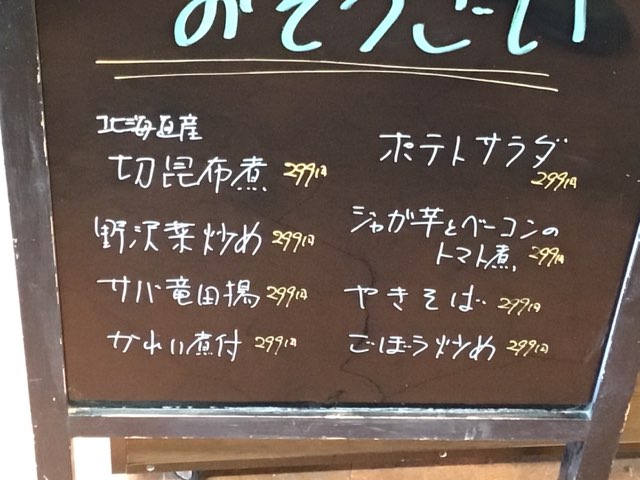 おそうざい
北海道産
切昆布煮 299円
野沢菜炒め 299円
サバ竜田揚 299円
かれい煮付 299円
ポテトサラダ
299円
ジャが芋とベーコンの
トマト煮 299円
やきそば 299円
ごぼう炒め 299円